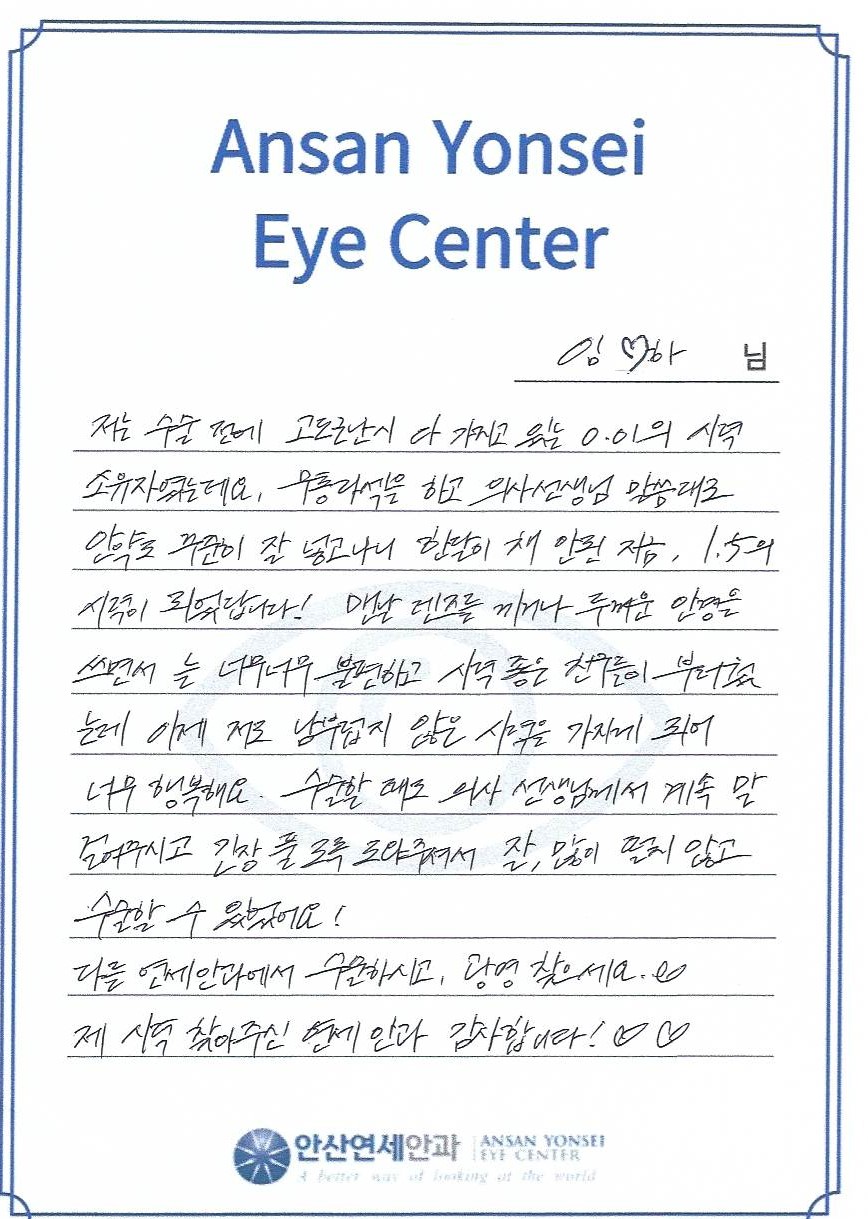 Ansan Yonsei
Eye Center
임♡하 님
저는 수술 전에 고도근난시 다 가지고 있는 0.01의 시력
소유자였는데요, 무통라섹을 하고 의사선생님 말씀대로
안약도 꾸준히 잘 넣고나니 한달이 채 안된 지금, 1.5의
시력이 되었답니다! 맨날 렌즈를 끼거나 두꺼운 안경을
쓰면서 늘 너무너무 불편하고 시력 좋은 친구들이 부러웠
는데 이제 저도 남부럽지 않은 시력을 가지게 되어
너무 행복해요. 수술할 때도 의사 선생님께서 계속 말
걸어주시고 긴장 풀도록 도와주셔서 잘, 많이 떨지 않고
수술할 수 있었어요!
다들 연세안과에서 수술하시고, 광명 찾으세요.♡
제 시력 찾아주신 연세 안과 감사합니다! ♡♡
안산연세안과 ANSAN YONSEI
EYE CENTER
A better way of looking at the world